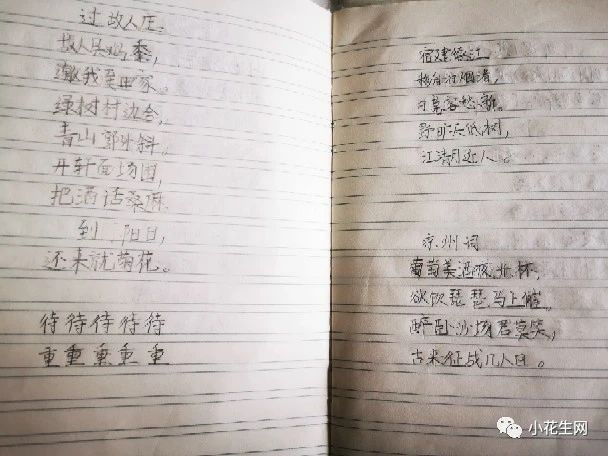 过故人庄
故人具鸡黍，
邀我至田家。
绿树村边合，
青山郭外斜。
开轩面场圃，
把酒话桑麻
到 阳日，
还来就菊花。
待待待待待
重重重重重
宿建德江
移舟泊烟渚，
日暮客愁新。
野旷天低树，
江清月近人。
凉州词
葡萄美酒夜光杯，
欲饮琵琶马上催。
醉卧沙场君莫笑，
古来征战几人回。
小花生网